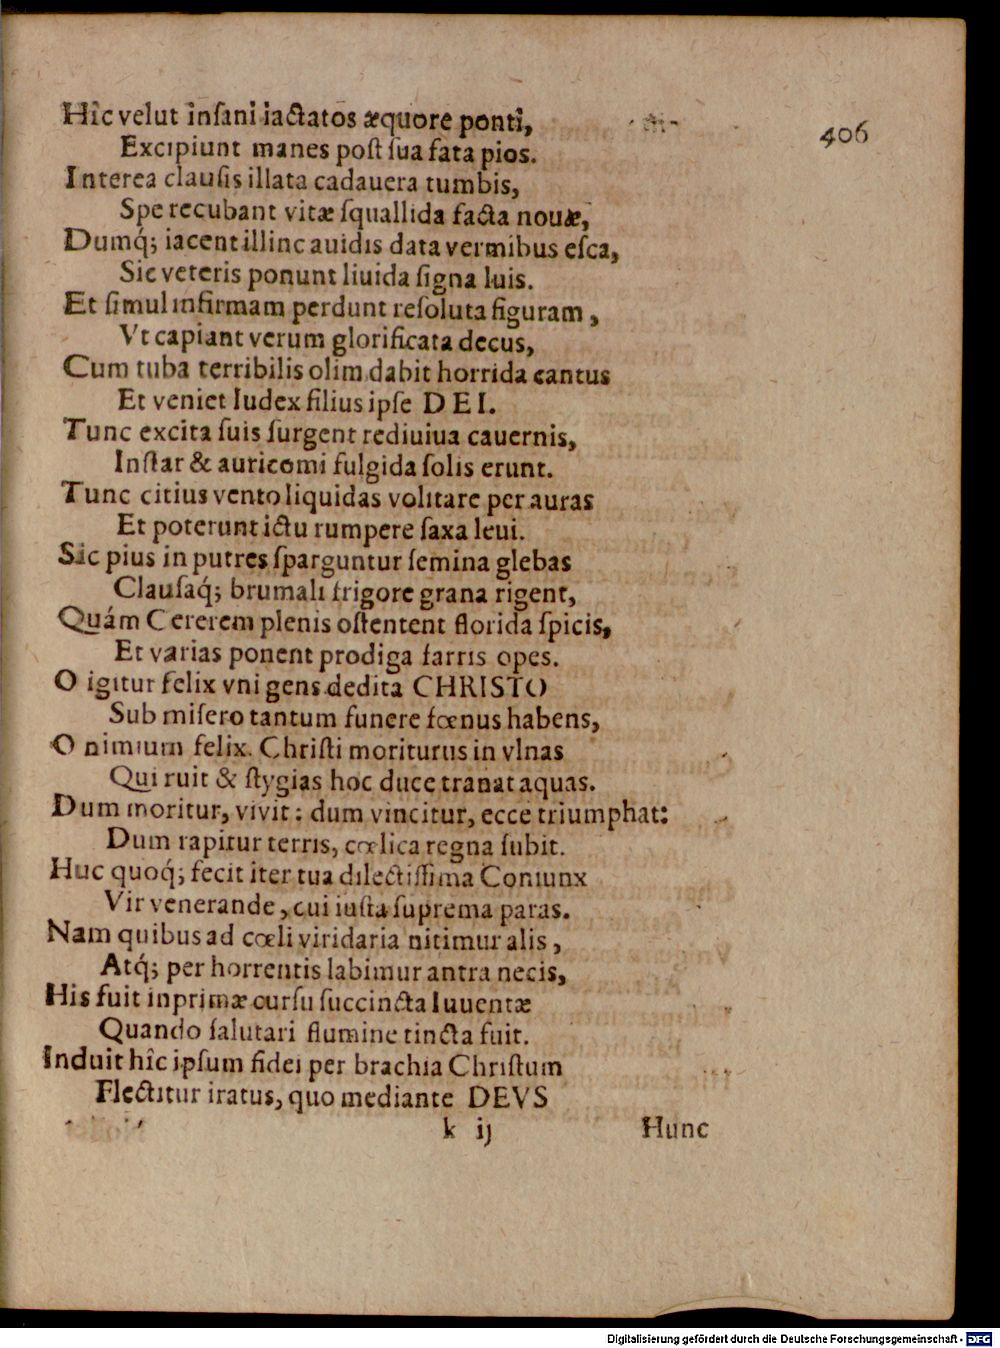 406
Hîc velut insani iactatos æquore ponti,
Excipiunt manes post sua fata pios.
Interea clausis illata cadauera tumbis,
Spe recubant vitæ squallida facta nouæ,
Dumq́; iacent illinc auidis data vermibus esca,
Sic veteris ponunt liuida signa luis.
Et simul infirmam perdunt resoluta figuram,
Vt capiant verum glorificata decus,
Cum tuba terribilis olim dabit horrida cantus
Et veniet Iudex filius ipse DEI.
Tunc excita suis surgent rediuiua cauernis,
Instar & auricomi fulgida solis erunt.
Tunc citius vento liquidas volitare per auras
Et poterunt ictu rumpere saxa leui.
Sic pius in putres sparguntur semina glebas
Clausaq́; brumali frigore grana rigent,
Quám Cererem plenis ostentent florida spicis,
Et varias ponent prodiga farris opes.
O igitur felix vni gens dedita CHRISTO
Sub misero tantum funere fœnus habens,
O nimium felix. Christi moriturus in vlnas
Qui ruit & stygias hoc duce tranat aquas.
Dum moritur, vivit: dum vincitur, ecce triumphat:
Dum rapitur terris, cœlica regna subit.
Huc quoq́; fecit iter tua dilectissima Coniunx
Vir venerande, cui iusta suprema paras.
Nam quibus ad cœli viridaria nitimur alis,
Atq́; per horrentis labimur antra necis,
His fuit in primæ cursu succincta Iuuentæ
Quando salutari flumine tincta fuit.
Induit hîc ipsum fidei per brachia Christum
Flectitur iratus, quo mediante DEVS
k ij Hunc
Digitalisierung gefördert durch die Deutsche Forschungsgemeinschaft - DFG